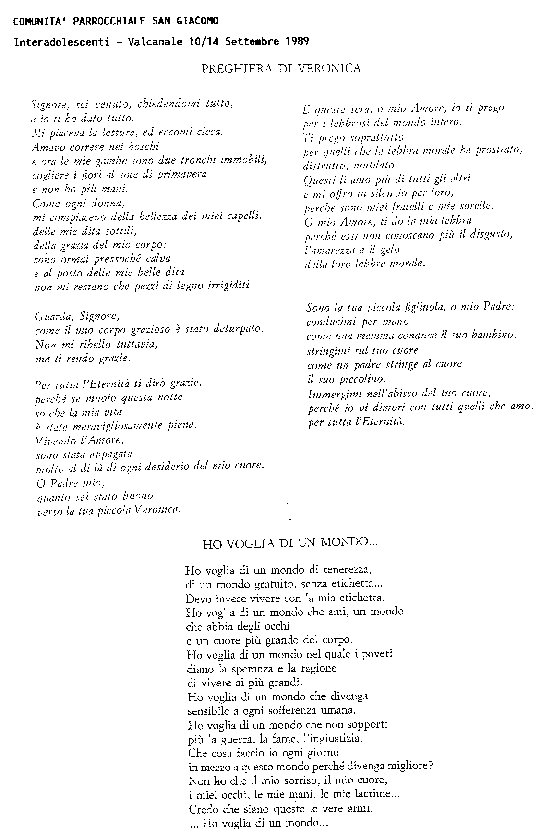 COMUNITA' PARROCCHIALE SAN GIACOMO
Interadolescenti - Valcanale 10/14 Settembre 1989
PREGHIERA DI VERONICA
Signore, sei venuto, chiedendomi tutto,
e io ti ho dato tutto.
Mi piaceva la lettura, ed eccomi cieca.
Amavo correre nei boschi
e ora le mie gambe sono due tronchi immobili,
cogliere i fiori al sole di primavera
e non ho più mani.
Come ogni donna,
mi compiacevo della bellezza dei miei capelli,
delle mie dita sottili,
della grazia del mio corpo:
sono ormai pressoché calva
e al posto delle mie belle dita
non mi restano che pezzi di legno irrigiditi
Guarda, Signore,
come il mio corpo grazioso è stato deturpato.
Non mi ribello tuttavia,
ma ti rendo grazie.
Per tutta l'Eternità ti dirò grazie,
perché se muoio questa notte
so che la mia vita
è stata meravigliosamente piena.
Vivendo l'Amore,
sono stata appagata
molto al di là di ogni desiderio del mio cuore.
O Padre mio,
quanto sei stato buono
verso la tua piccola Veronica.
E ancora sera, o mio Amore, io ti prego
per i lebbrosi del mondo intero.
Ti prego soprattutto
per quelli che la lebbra morale ha prostrato,
distrutto, mutilato
Questi li amo più di tutti gli altri
e mi offro in silenzio per loro,
perché sono miei fratelli e mie sorelle.
O mio Amore, ti do la mia lebbra
perché essi non conoscano più il disgusto,
l'amarezza e il gelo
della loro lebbra morale.
Sono la tua piccola figliuola, o mio Padre:
conducimi per mano
come una mamma conduce il suo bambino,
stringimi sul tuo cuore
come un padre stringe al cuore
il suo piccolino.
Immergimi nell'abisso del tuo cuore,
perché io vi dimori con tutti quelli che amo.
per tutta l'Eternità.
HO VOGLIA DI UN MONDO...
Ho voglia di un mondo di tenerezza,
di un mondo gratuito, senza etichetta...
Devo invece vivere con la mia etichetta.
Ho voglia di un mondo che ami, un mondo
che abbia degli occhi
e un cuore più grande del corpo.
Ho voglia di un mondo nel quale i poveri
diano la speranza e la ragione
di vivere ai più grandi.
Ho voglia di un mondo che divenga
sensibile a ogni sofferenza umana.
Ho voglia di un mondo che non sopporti
più la guerra, la fame, l'ingiustizia.
Che cosa faccio io ogni giorno
in mezzo a questo mondo perché divenga migliore?
Non ho che il mio sorriso, il mio cuore,
i miei occhi, le mie mani, le mie lacrime...
Credo che siano queste le vere armi.
... Ho voglia di un mondo...